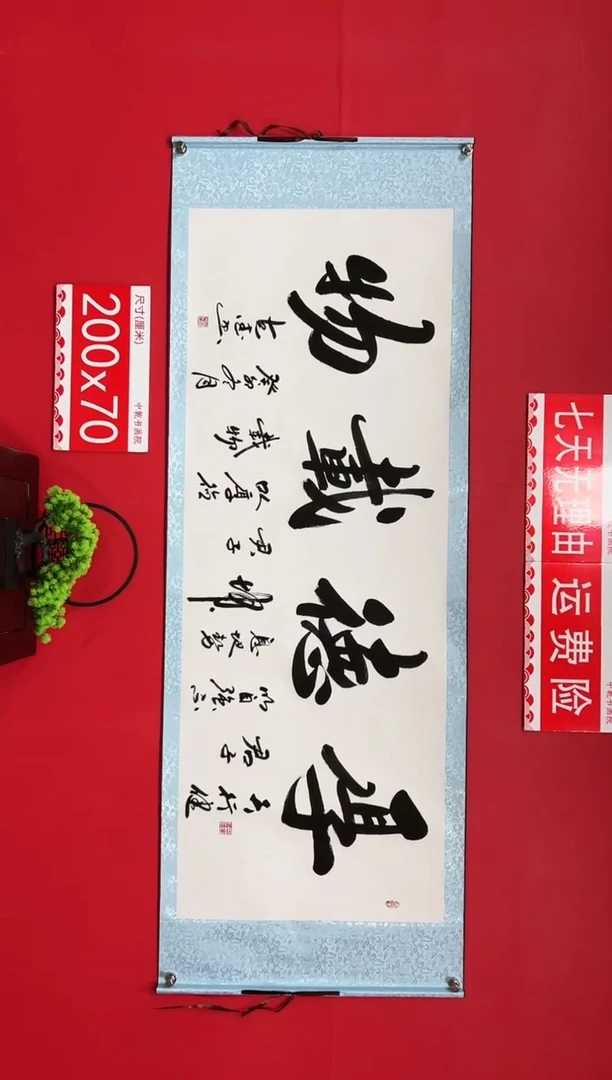 厚德載物
天行健
君子
以自強不
息地勢
坤
君子
以厚德
載物
癸卯
尺寸(厘米)
200x70
中乾书画院
七天无理由
运费险
中乾书画院